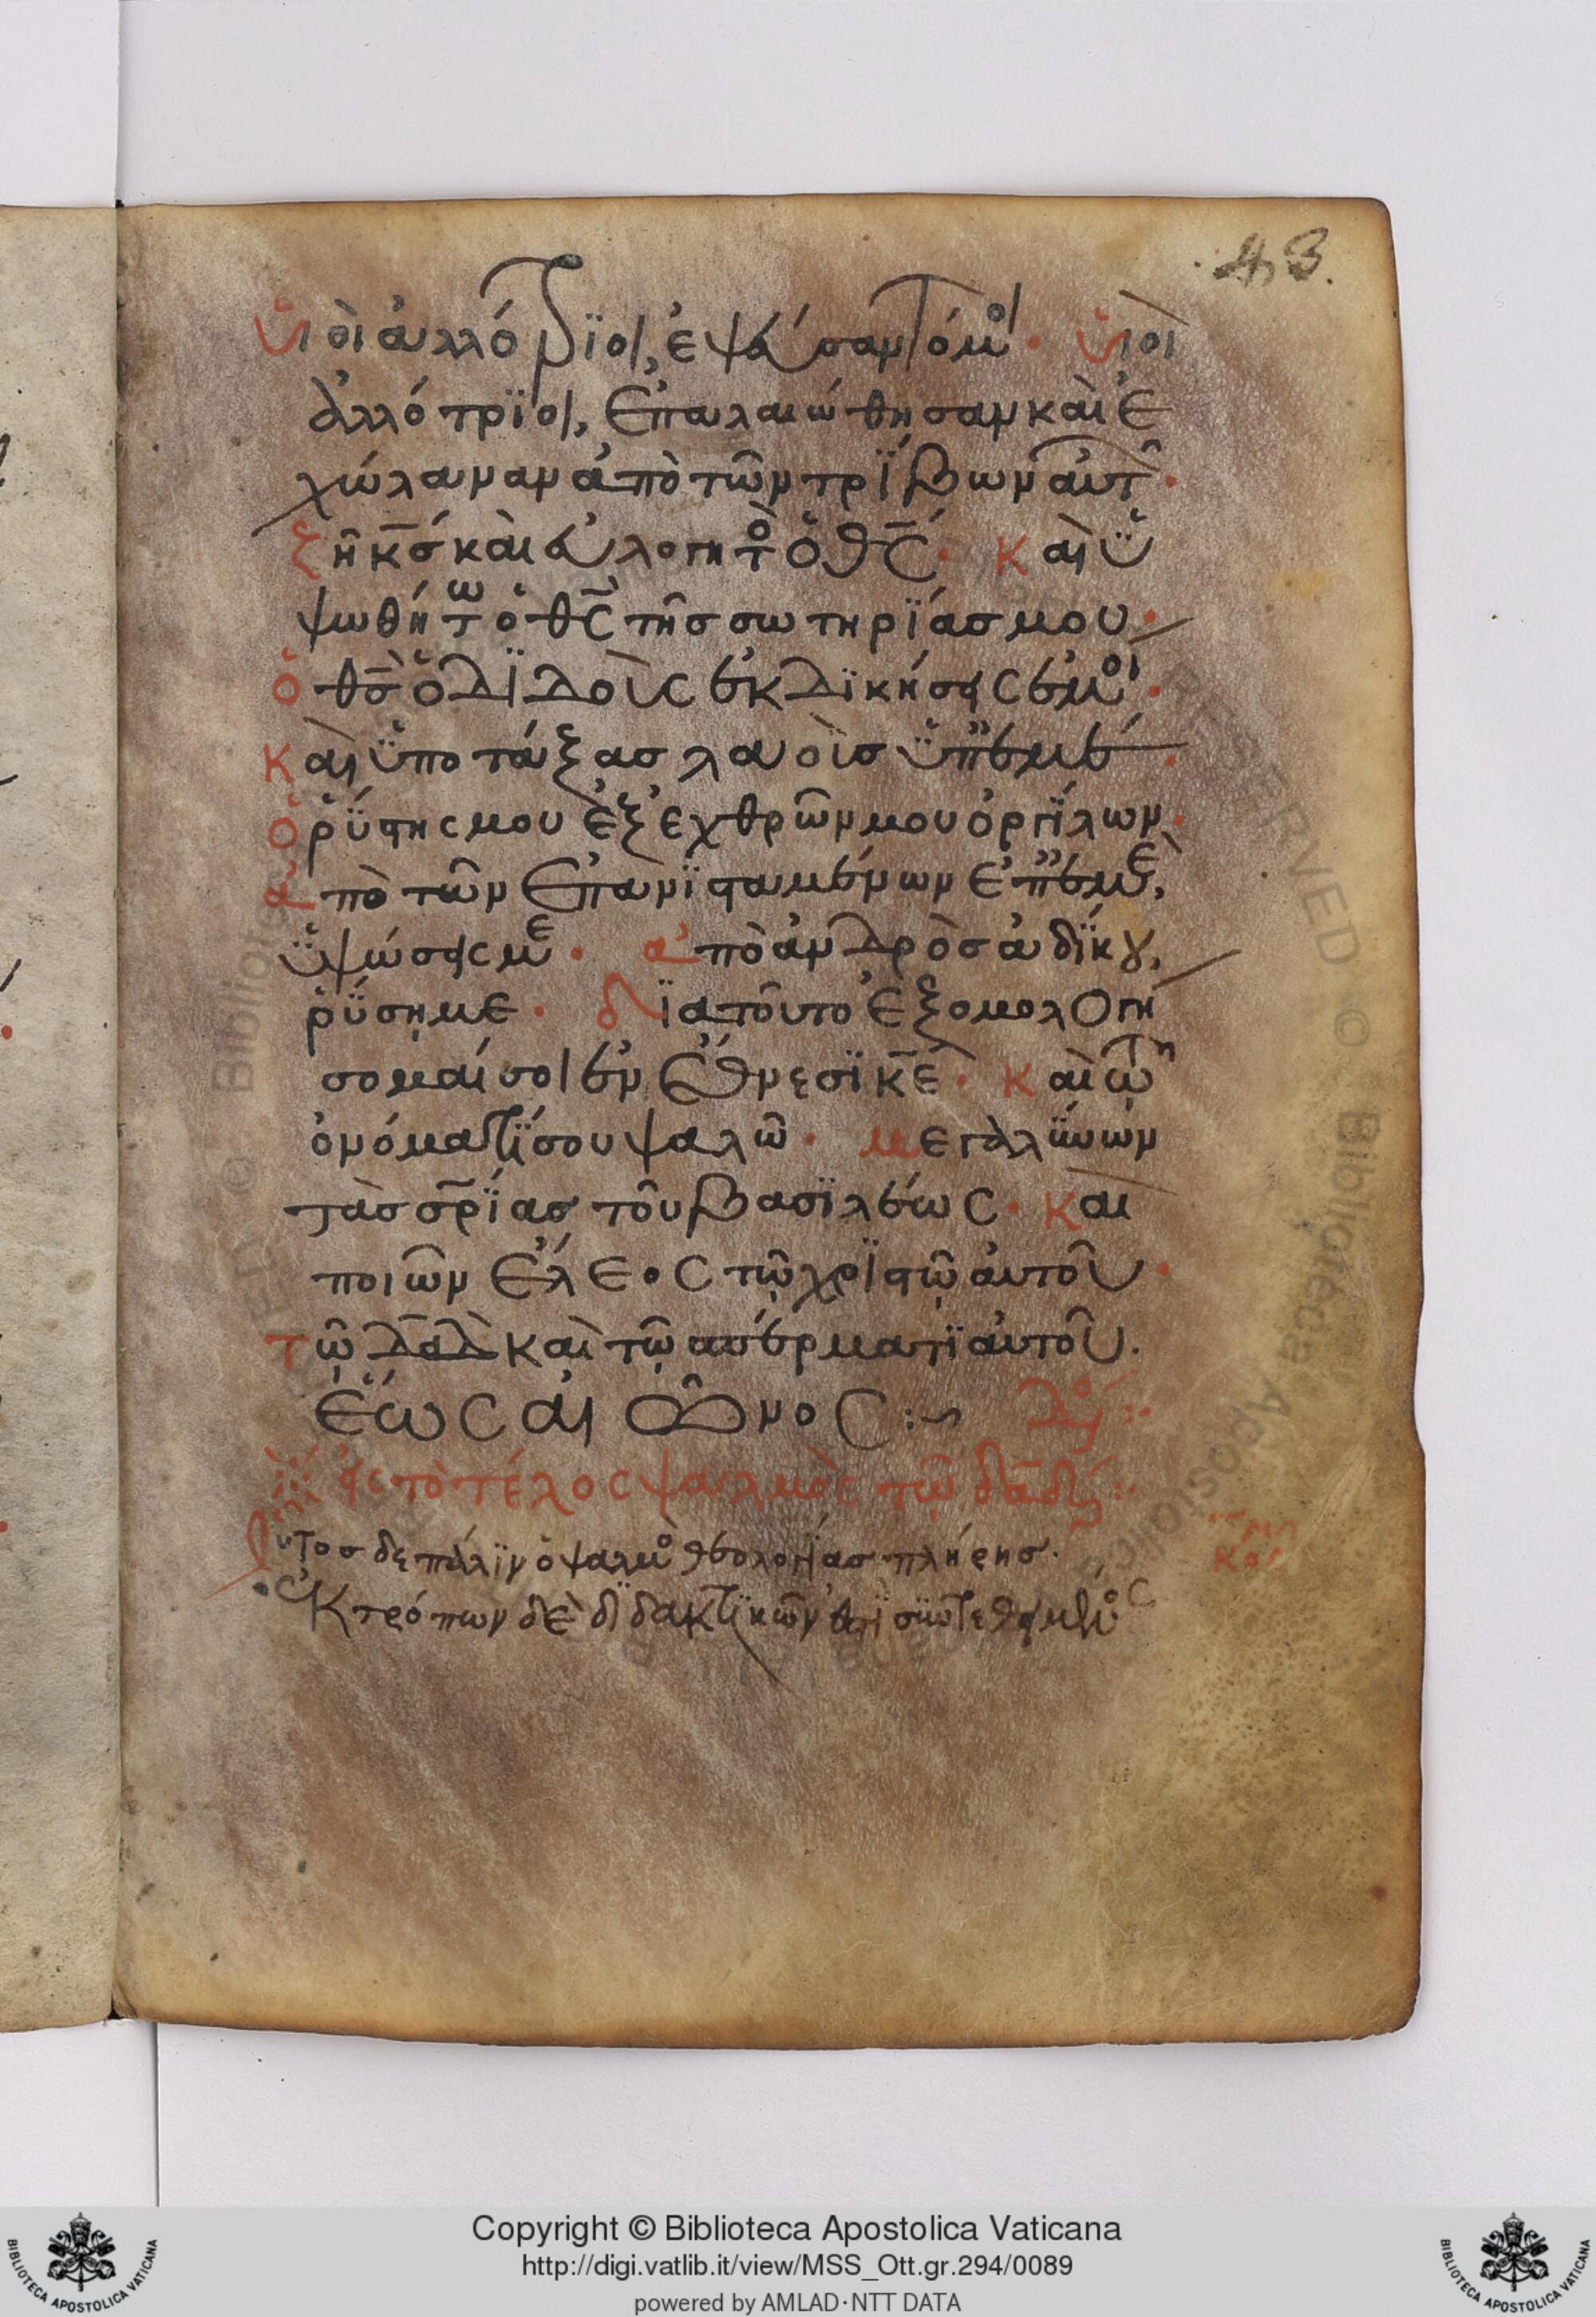 43.
ὑιοὶ ἀλλότριοι, ἐψεύσαντό μοι· ὑιοὶ
ἀλλότριοι, ἐπαλαιώθησαν καὶ ἐ
χώλαναν ἀπὸ τῶν τρίβων αὐτ·
ζῆ κσ καὶ εὐλογητὸ ὁ θς· Καὶ ὑ
ψωθήτω ὁ θς τῆσ σωτηρίασ μου·
ὁ θσ ὁ διδοὺς ἐκδικήσεις ἐμοὶ·
Καὶ ὑποτάξασ λαοὺσ ὑπ' ἐμέ·
ὁ ῥύστης μου ἐξ ἐχθρῶν μου ὀργίλων·
ἀπὸ τῶν ἐπανισταμένων ἐπ' ἐμὲ,
ὑψώσεις με· ἀπὸ ἀνδρὸσ ἀδίκου,
ῥύσῃ με· διατοῦτο ἐξομολογή
σομαί σοι ἐν ἔθνεσι κε· Καὶ τῶ
ὀνόματί σου ψαλῶ· μεγαλύνων
τὰσ σριασ τοῦ βασιλέως· Και
ποιῶν ἔλεος τῷ χριστῷ αὐτοῦ·
τῷ δαδ καὶ τῷ σπέρματι αὐτοῦ.
ἕως αἰῶνος:~
εἰς τὸ τέλος ψαλμὸς τῷ δαδ:
τοσ δε πάλιν ὁ ψαλμὸ θεολογίασ πλήρησ.
Ἐκ τρόπων δὲ διδακτικῶν
Copyright © Biblioteca Apostolica Vaticana
http://digi.vatlib.it/view/MSS_Ott.gr.294/0089
powered by AMLAD·NTT DATA
BIBLIOTECA APOSTOLICA VATICANA
BIBLIOTECA APOSTOLICA VATICANA